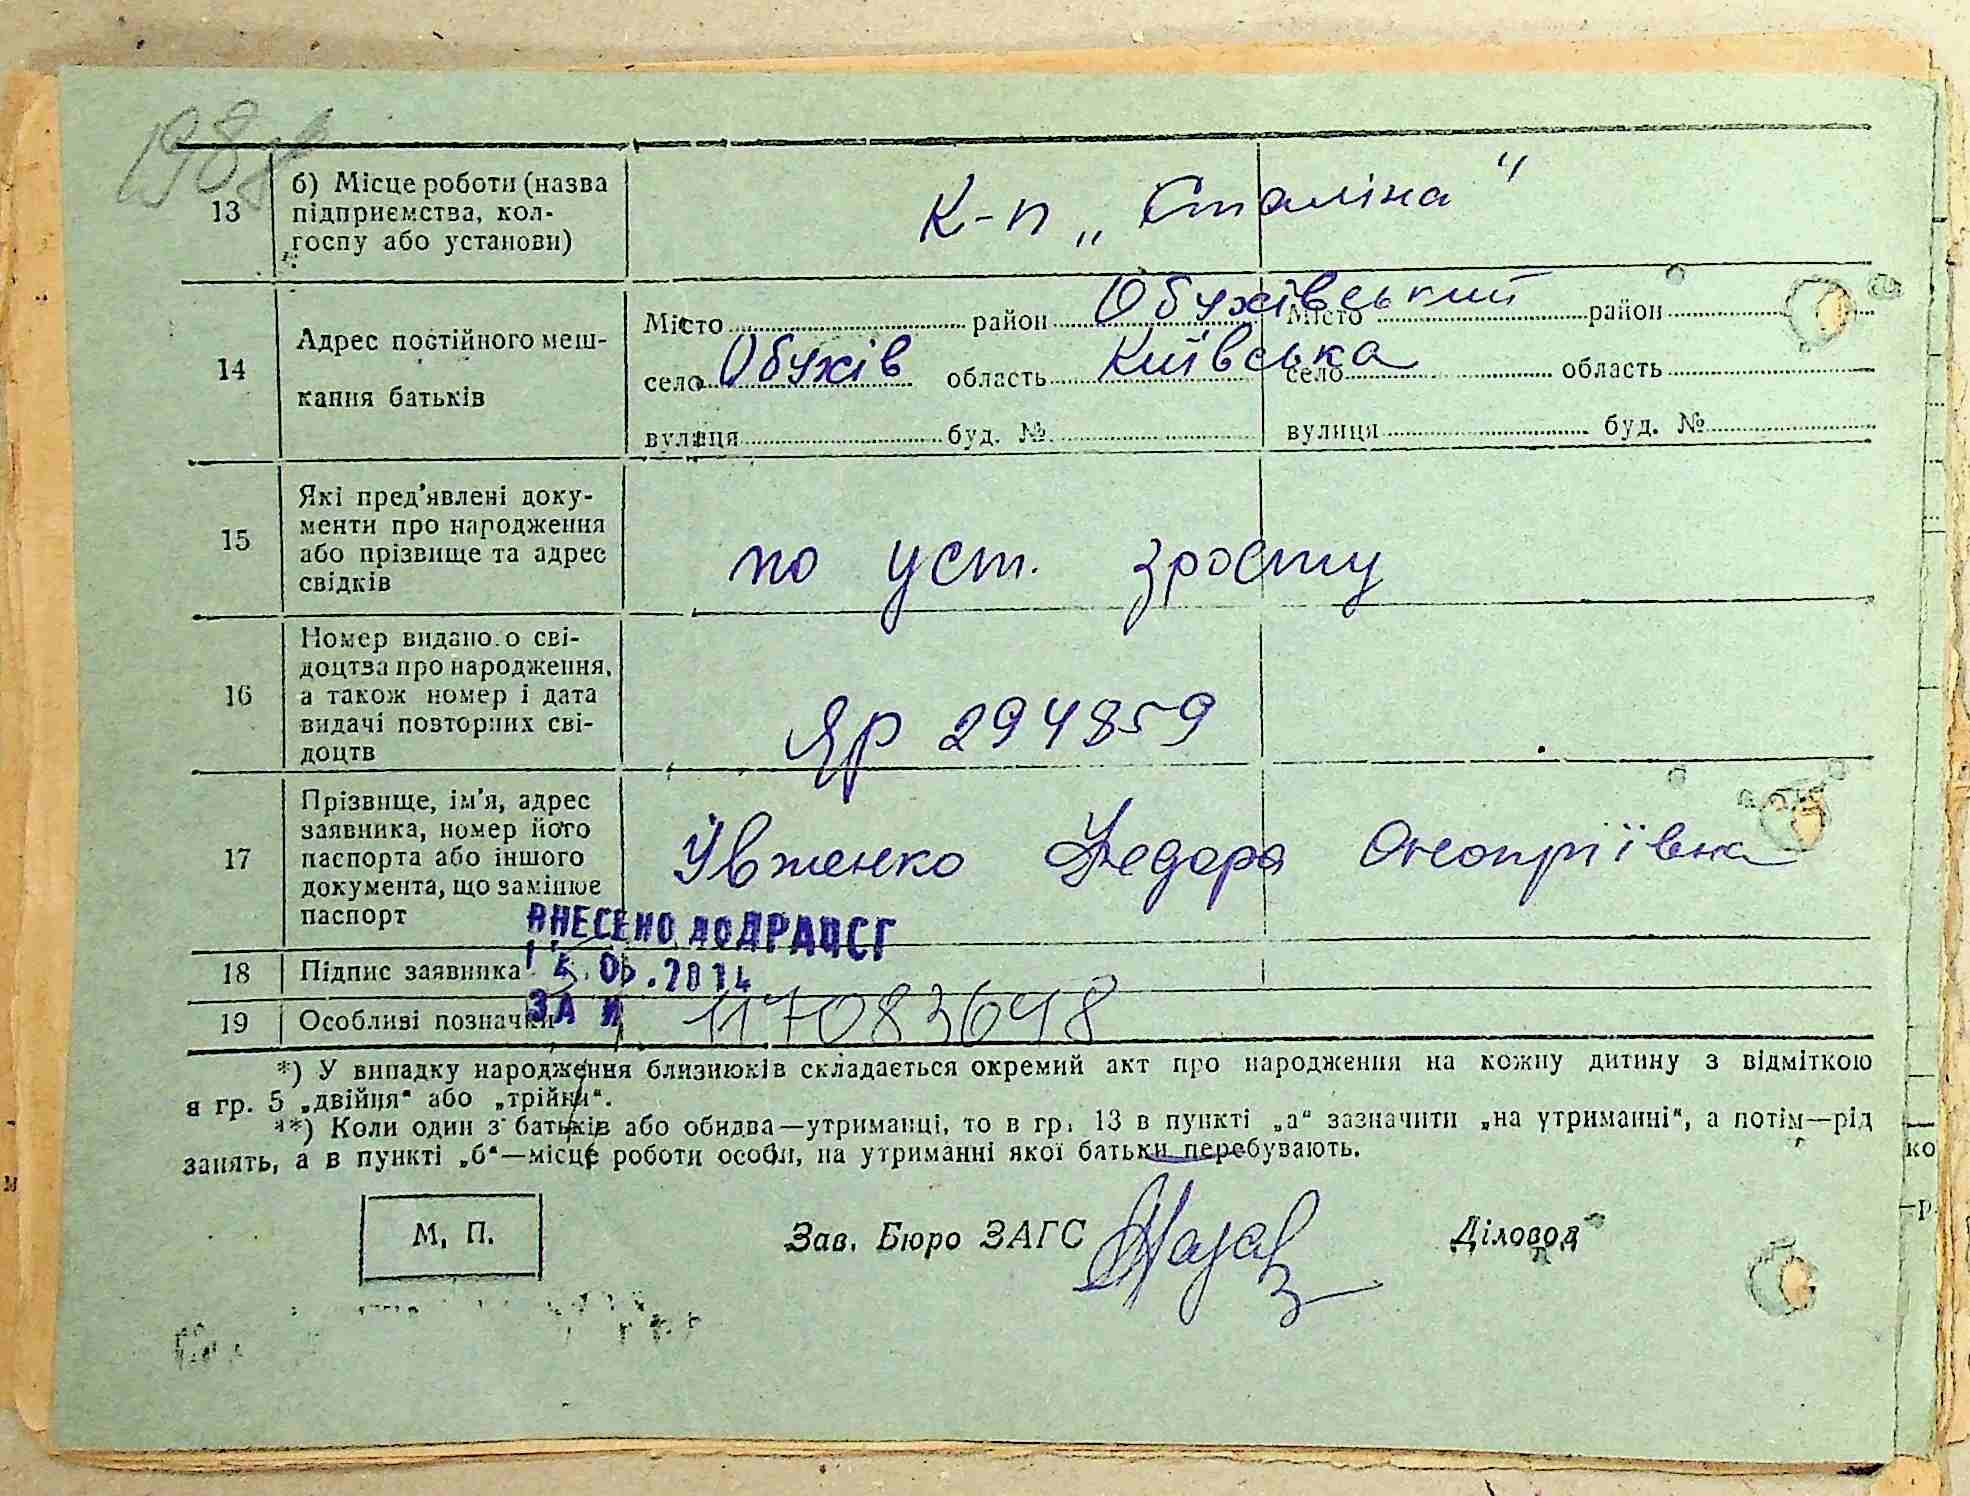 198
13 б) Місце роботи (назва
підприємства, кол-
госпу або установи)
К-п „Сталіна"
14 Адрес постійного меш-
кання батьків
Місто район Обухівський Місто район
село Обухів область Київська село область
вулиця буд. № вулиця буд. №
15 Які пред'явлені доку-
менти про народження
або прізвище та адрес
свідків
по уст. зросту
16 Номер видано.о сві-
доцтва про народження,
а також номер і дата
видачі повторних сві-
доцтв
ЯР 294859
17 Прізвище, ім'я, адрес
заявника, номер його
паспорта або іншого
документа, що замінює
паспорт
Івженко Федора Онопріївна
ВНЕСЕНО ДО ДРАЦСГ
18 Підпис заявника
.05.2014
19 Особливі позначки
ЗА № 117083648
*) У випадку народження близнюків складається окремий акт про народження на кожну дитину з відміткою
в гр. 5 „двійня" або „трійня".
**) Коли один з батьків або обидва—утриманці, то в гр. 13 в пункті „а" зазначити „на утриманні", а потім—рід
занять, а в пункті „б"—місце роботи особи, на утриманні якої батьки перебувають.
М. П.
Зав. Бюро ЗАГС
Діловод